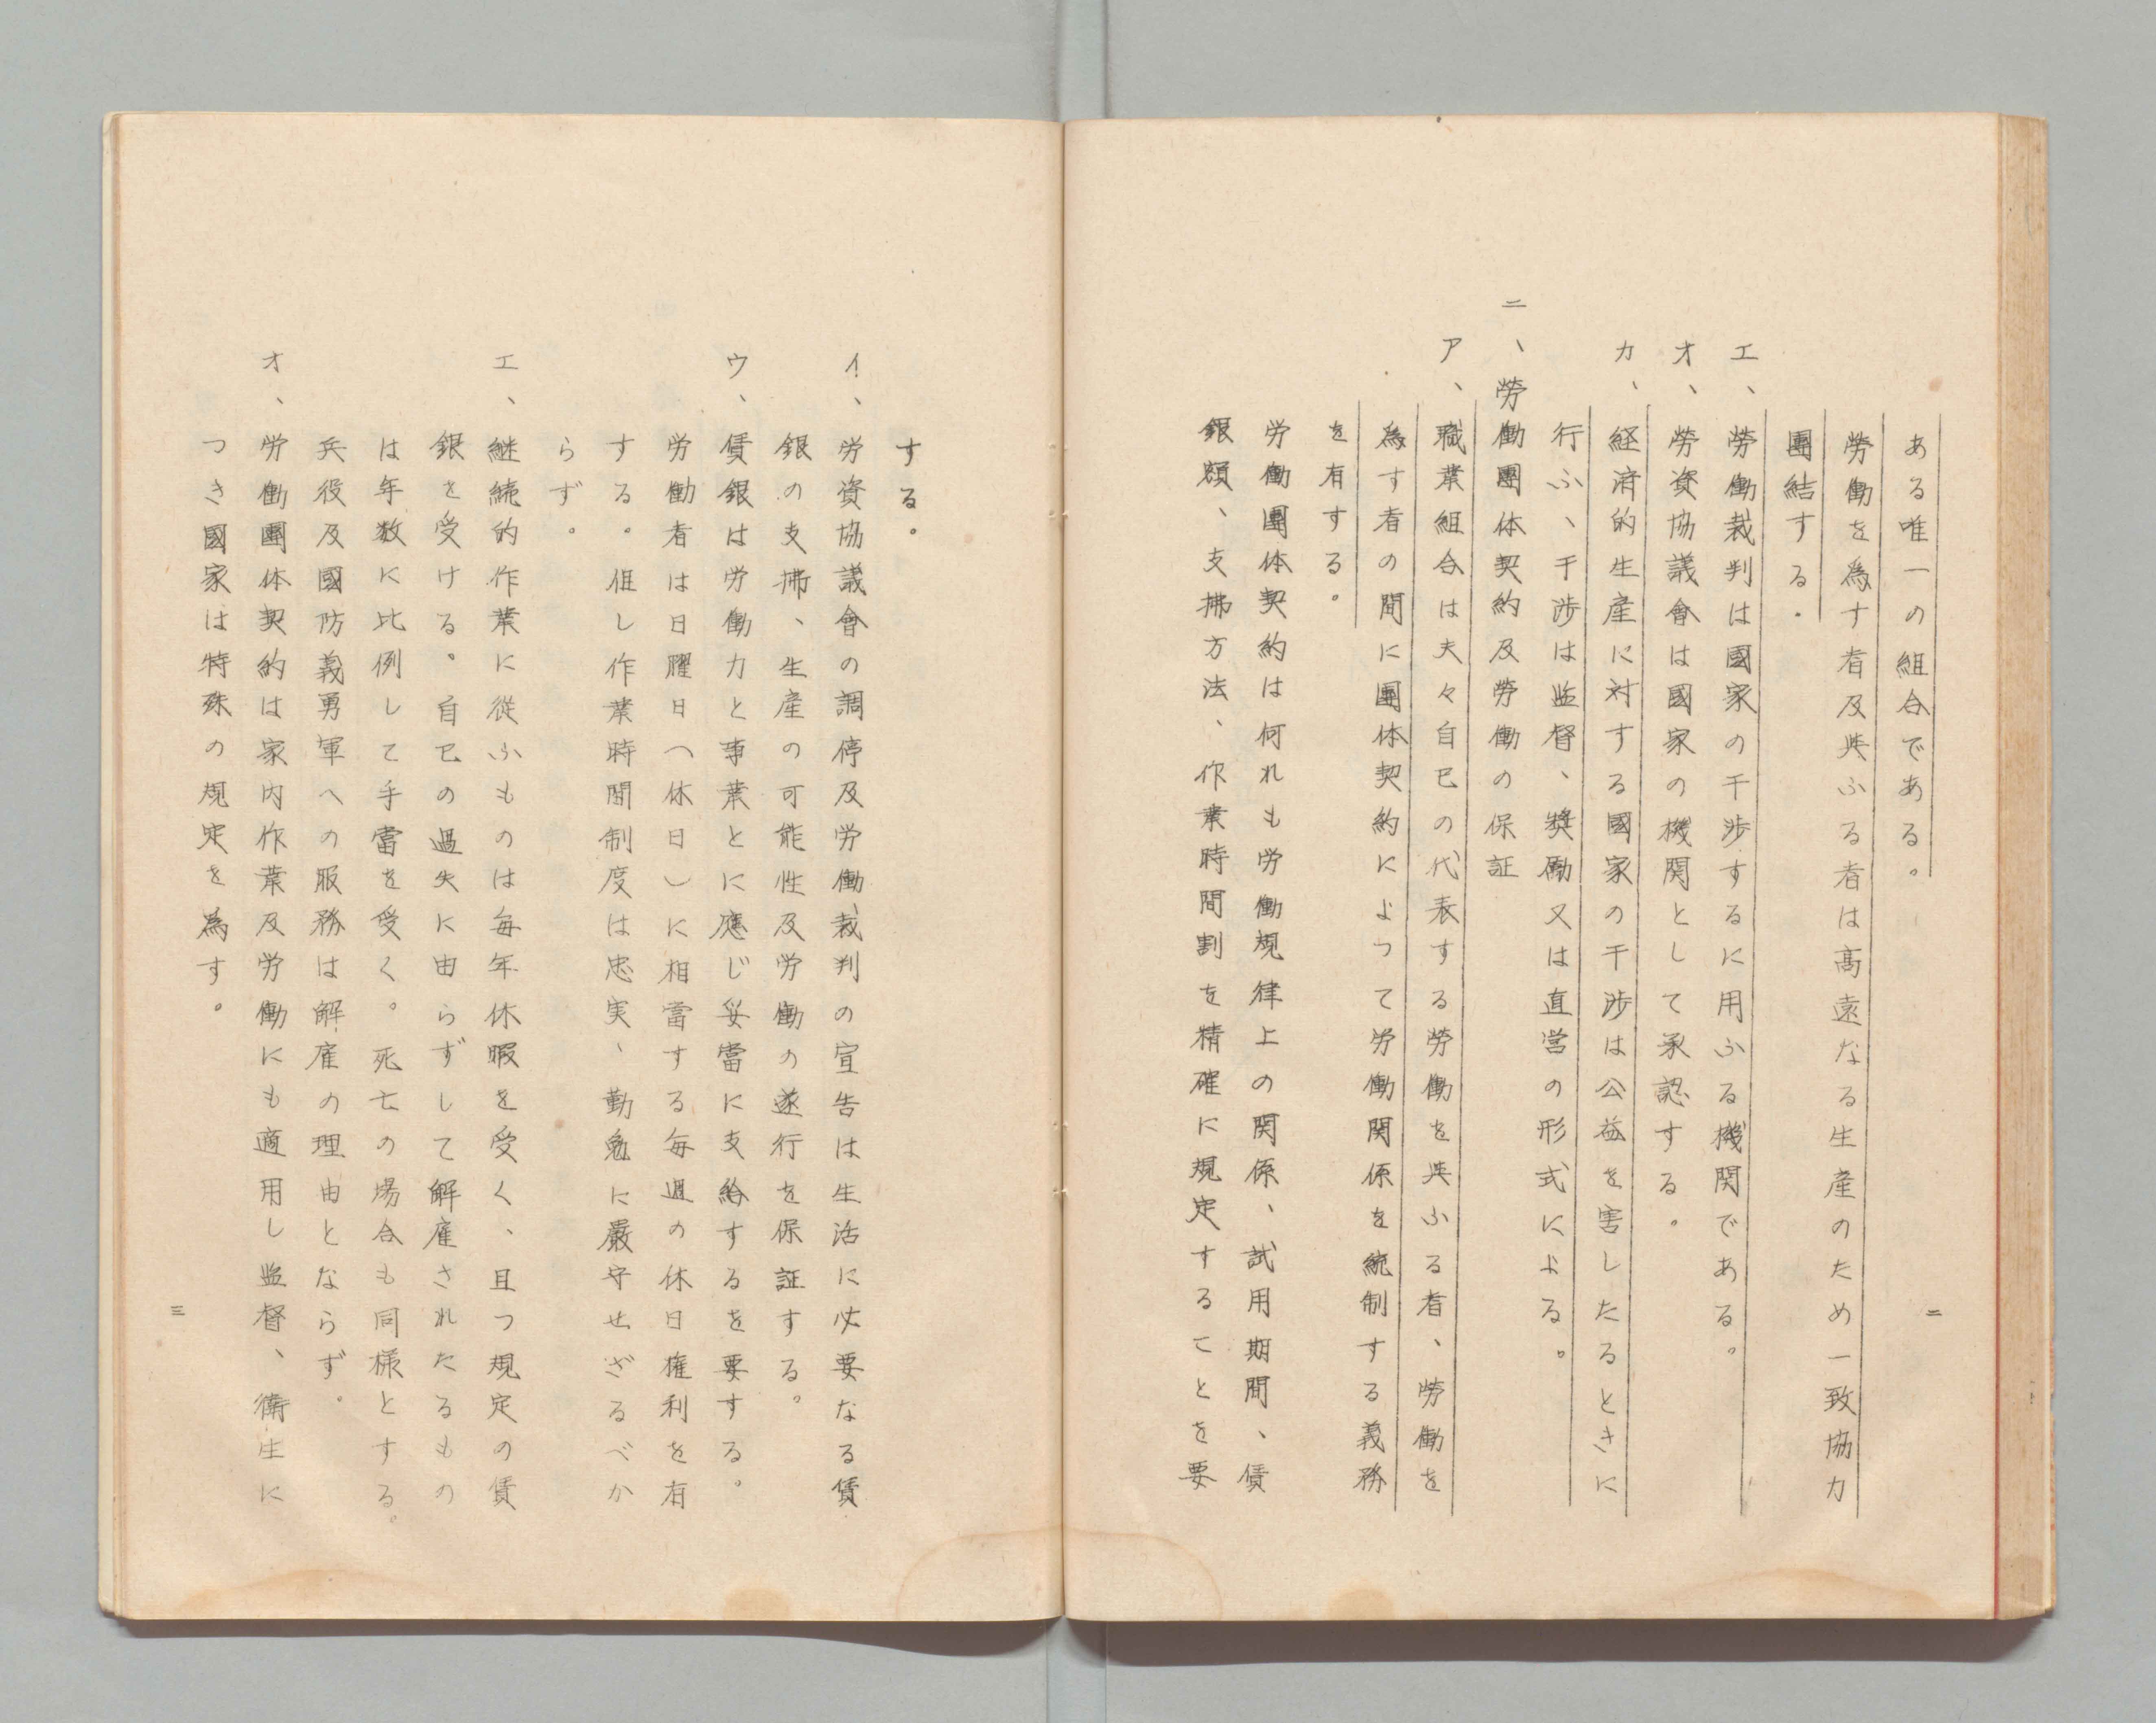 ある唯一の組合である。
勞働を為す者及與ふる者は高遠なる生産のため一致協力
團結する.
エ、勞働裁判は國家の干渉するに用ふる機関である。
オ、勞資協議會は國家の機関として承認する。
カ、経済的生産に対する國家の干渉は公益を害したるときに
行ふ、干渉は監督、奬励又は直営の形式による。
二、勞働團体契約及勞働の保証
ア、職業組合は夫々自己の代表する勞働を與ふる者、勞働を
為す者の間に團体契約によって労働関係を統制する義務
を有する。
労働團体契約は何れも労働規律上の関係、試用期間、賃
銀額、支拂方法、作業時間割を精確に規定することを要
二
する。
イ、労資協議會の調停及労働裁判の宣告は生活に必要なる賃
銀の支拂、生産の可能性及労働の遂行を保証する。
ウ、賃銀は労働力と事業とに應じ妥當に支給するを要する。
労働者は日曜日(休日)に相當する毎週の休日権利を有
する。但し作業時間制度は忠実、勤勉に嚴守せざるべか
らず。
エ、継続的作業に従ふものは毎年休暇を受く、且つ規定の賃
銀を受ける。自己の過失に由らずして解雇されたるもの
は年数に比例して手當を受く。死亡の場合も同様とする。
兵役及國防義勇軍への服務は解雇の理由とならず。
オ、労働團体契約は家内作業及労働にも適用し監督、衛生に
つき國家は特殊の規定を為す。
三